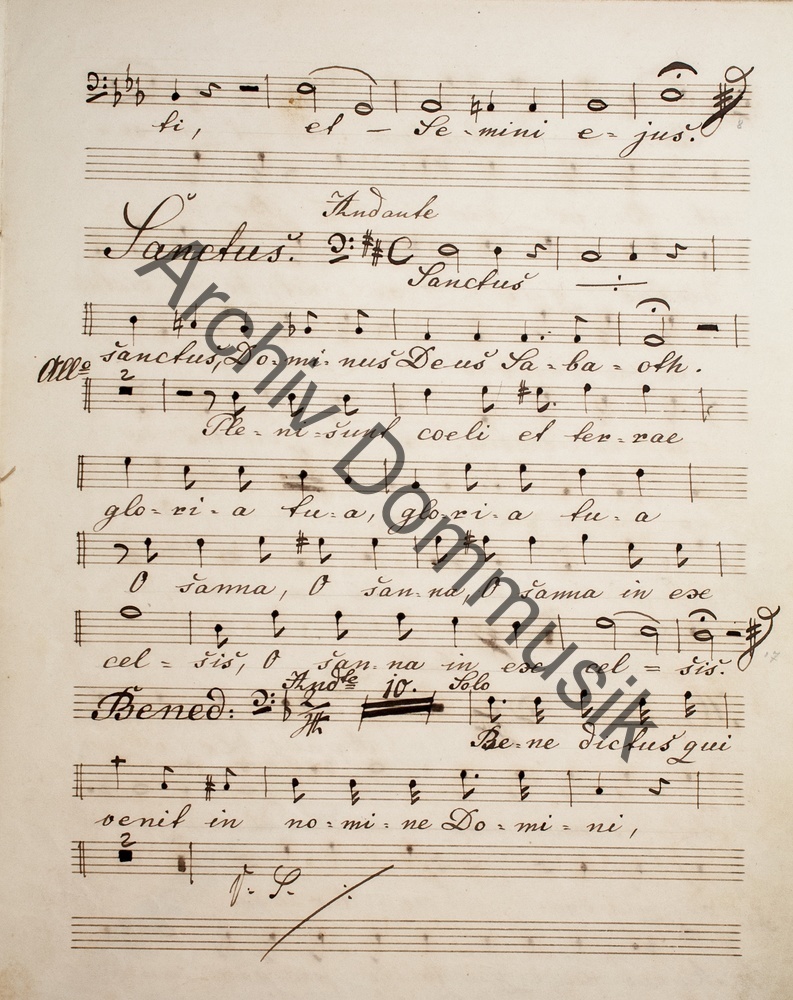 ti, et – Se-mini e-jus.
Andante
Sanctus. C Sanctus
Sanctus, Do-mi-nus Deus Sa-ba-oth.
Allo
2
Ple-ni-sunt coeli et ter-rae
glo-ri-a tu-a, glo-ri-a tu-a
O sanna, O san-na, O sanna in exe
cel-sis, O san-na in exe cel-sis.
Andte 10. Solo
Bened:
Be-ne dictus qui
venit in no-mi-ne Do-mi-ni,
2
V. S.
Archiv Dommusik